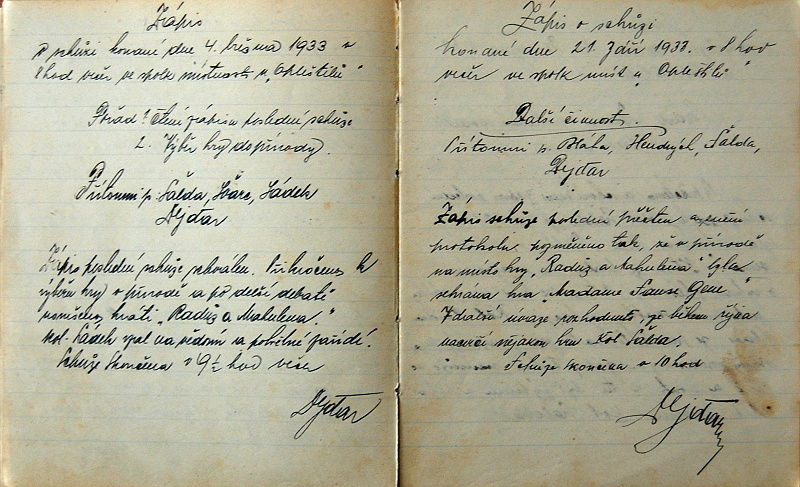 Zápis
o schůzi konané dne 4. března 1933 v
8 hod večer ve spolk místnosti u „Opleštilů"
Pořad: Čtení zápisu poslední schůze
2. Výběr hry do přírody.
Přítomni p. Šalda, Sádek
Dejdar
Zápis poslední schůze schválen. Přikročeno k
výběru hry v přírodě a po delší debatě
hráti „Radúz a Mahulena."
kol. Sádek vzal na vědomí a potřebné zařídí.
Schůze skončena v 9½ hod večer
Dejdar
Zápis o schůzi
konané dne 21. září 1933 v 8 hod
večer ve spolk míst u „Opleštilů"
Další činnost.
Přítomni p. Bláha, Hendrych, Šalda,
Dejdar
Zápis schůze poslední přečten a znění
protokolu pozměněno tak, že v přírodě
na místo hry „Radúz a Mahulena" byla
sehrána hra „Madame Sans Gene"
Z další úvaze rozhodnuto, že během října
nacvičí nějakou hru kol Šalda.
Schůze skončena v 10 hod
Dejdar